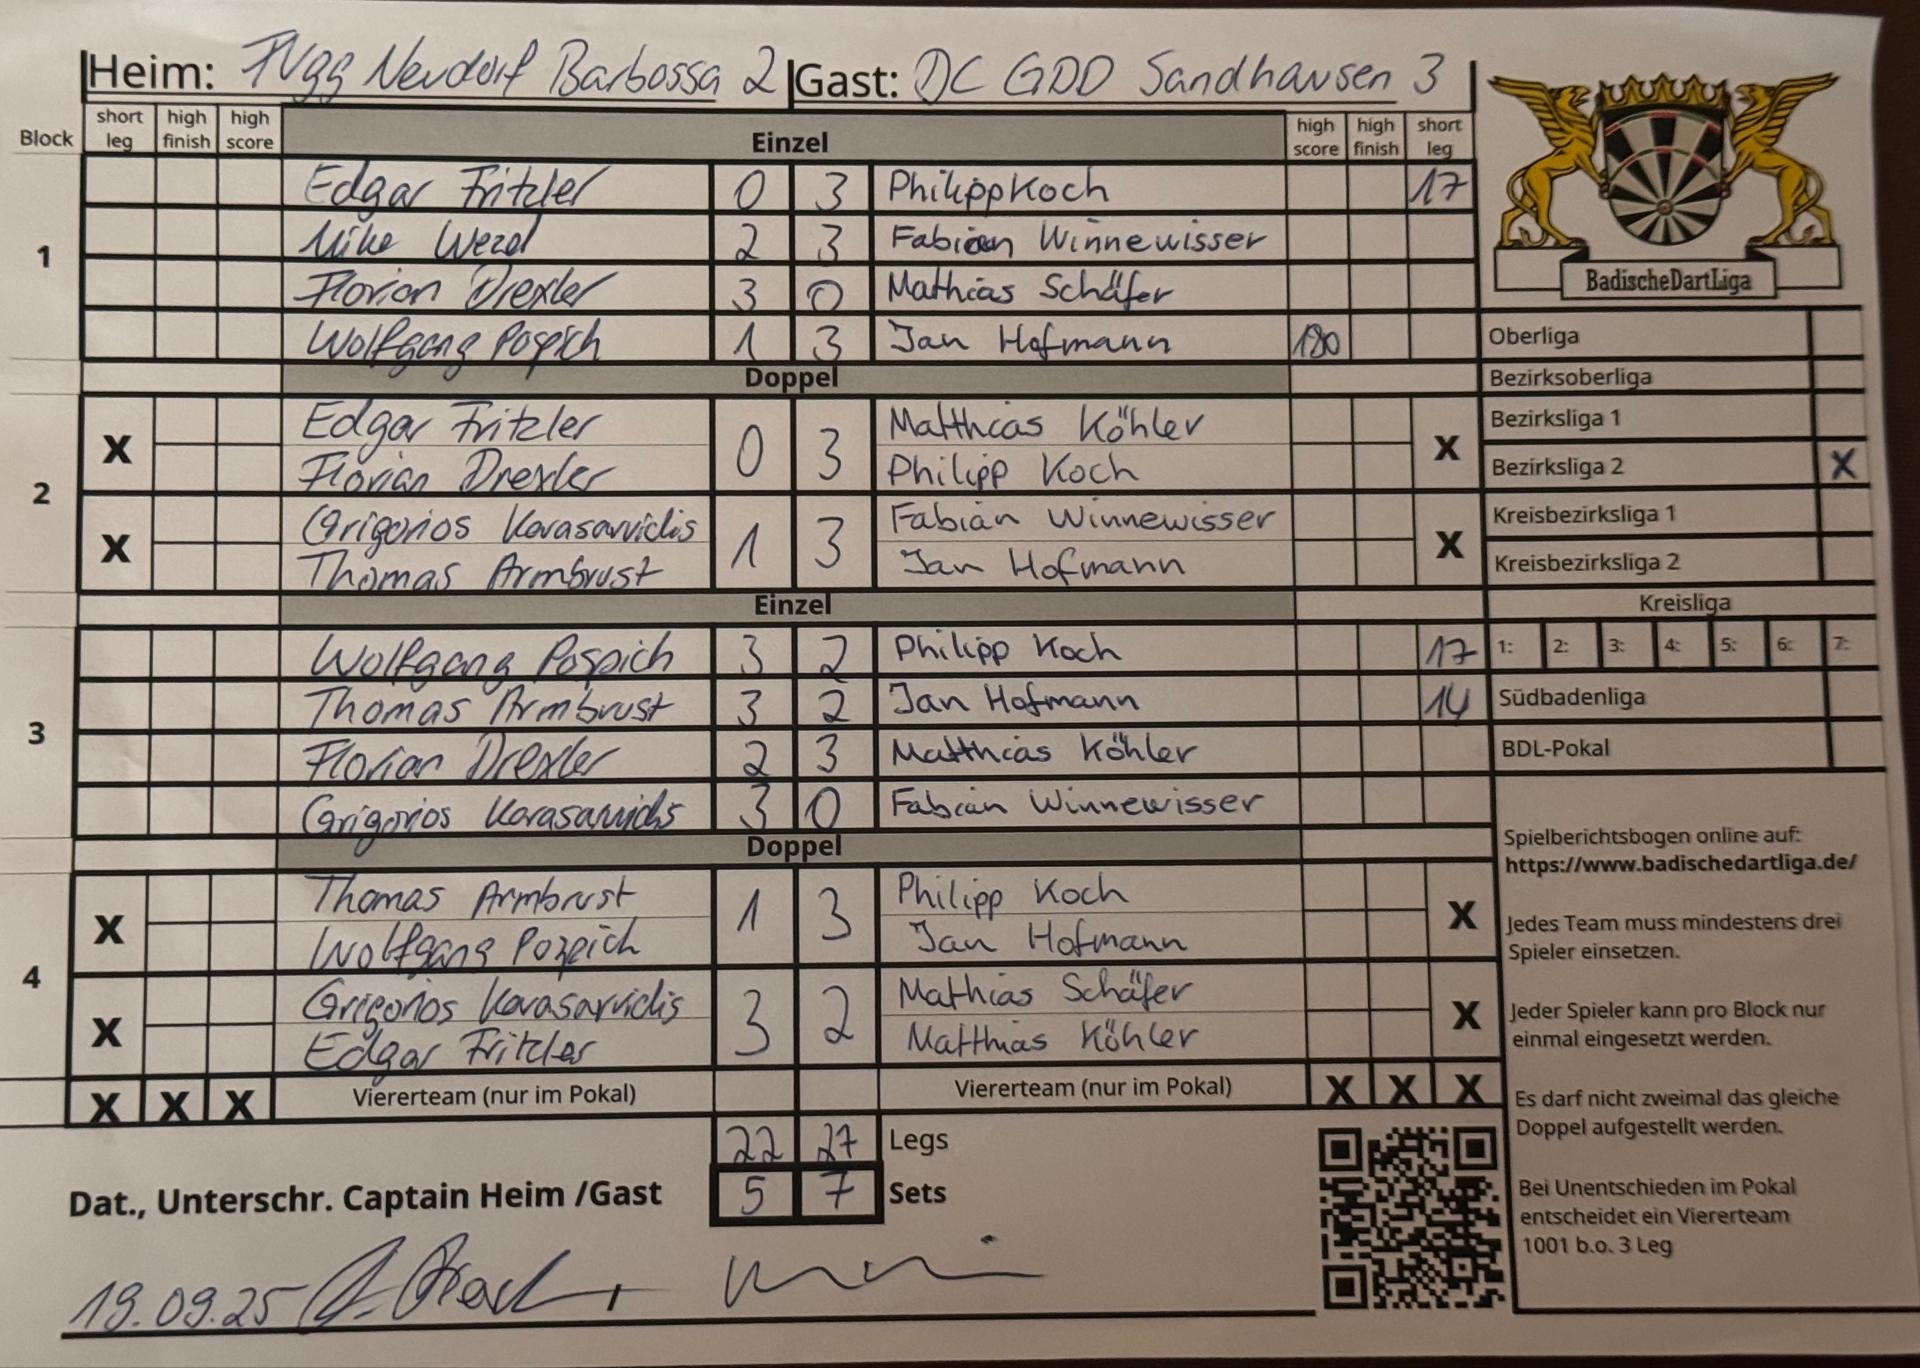 Heim: TVgg Neudorf Barbossa 2 Gast: DC GDD Sandhausen 3
Block short leg high finish high score Einzel high score high finish short leg
1
Edgar Fritzler 0 3 Philipp Koch 17
Mike Wezel 2 3 Fabian Winnewisser
Florian Drexler 3 0 Mathias Schäfer
Wolfgang Pospich 1 3 Jan Hofmann 180
Doppel
2
X Edgar Fritzler 0 3 Matthias Köhler X
Florian Drexler Philipp Koch
X Grigorios Karasavvidis 1 3 Fabian Winnewisser X
Thomas Armbrust Jan Hofmann
Einzel
3
Wolfgang Pospich 3 2 Philipp Koch 17
Thomas Armbrust 3 2 Jan Hofmann 14
Florian Drexler 2 3 Matthias Köhler
Grigorios Karasavvidis 3 0 Fabian Winnewisser
Doppel
4
X Thomas Armbrust 1 3 Philipp Koch X
Wolfgang Pospich Jan Hofmann
X Grigorios Karasavvidis 3 2 Mathias Schäfer X
Edgar Fritzler Matthias Köhler
X X X Viererteam (nur im Pokal) Viererteam (nur im Pokal) X X X
22 27 Legs
Dat., Unterschr. Captain Heim /Gast 5 7 Sets
19.09.25
BadischeDartLiga
Oberliga
Bezirksoberliga
Bezirksliga 1
Bezirksliga 2 X
Kreisbezirksliga 1
Kreisbezirksliga 2
Kreisliga
1: 2: 3: 4: 5: 6: 7:
Südbadenliga
BDL-Pokal
Spielberichtsbogen online auf:
https://www.badischedartliga.de/
Jedes Team muss mindestens drei
Spieler einsetzen.
Jeder Spieler kann pro Block nur
einmal eingesetzt werden.
Es darf nicht zweimal das gleiche
Doppel aufgestellt werden.
Bei Unentschieden im Pokal
entscheidet ein Viererteam
1001 b.o. 3 Leg